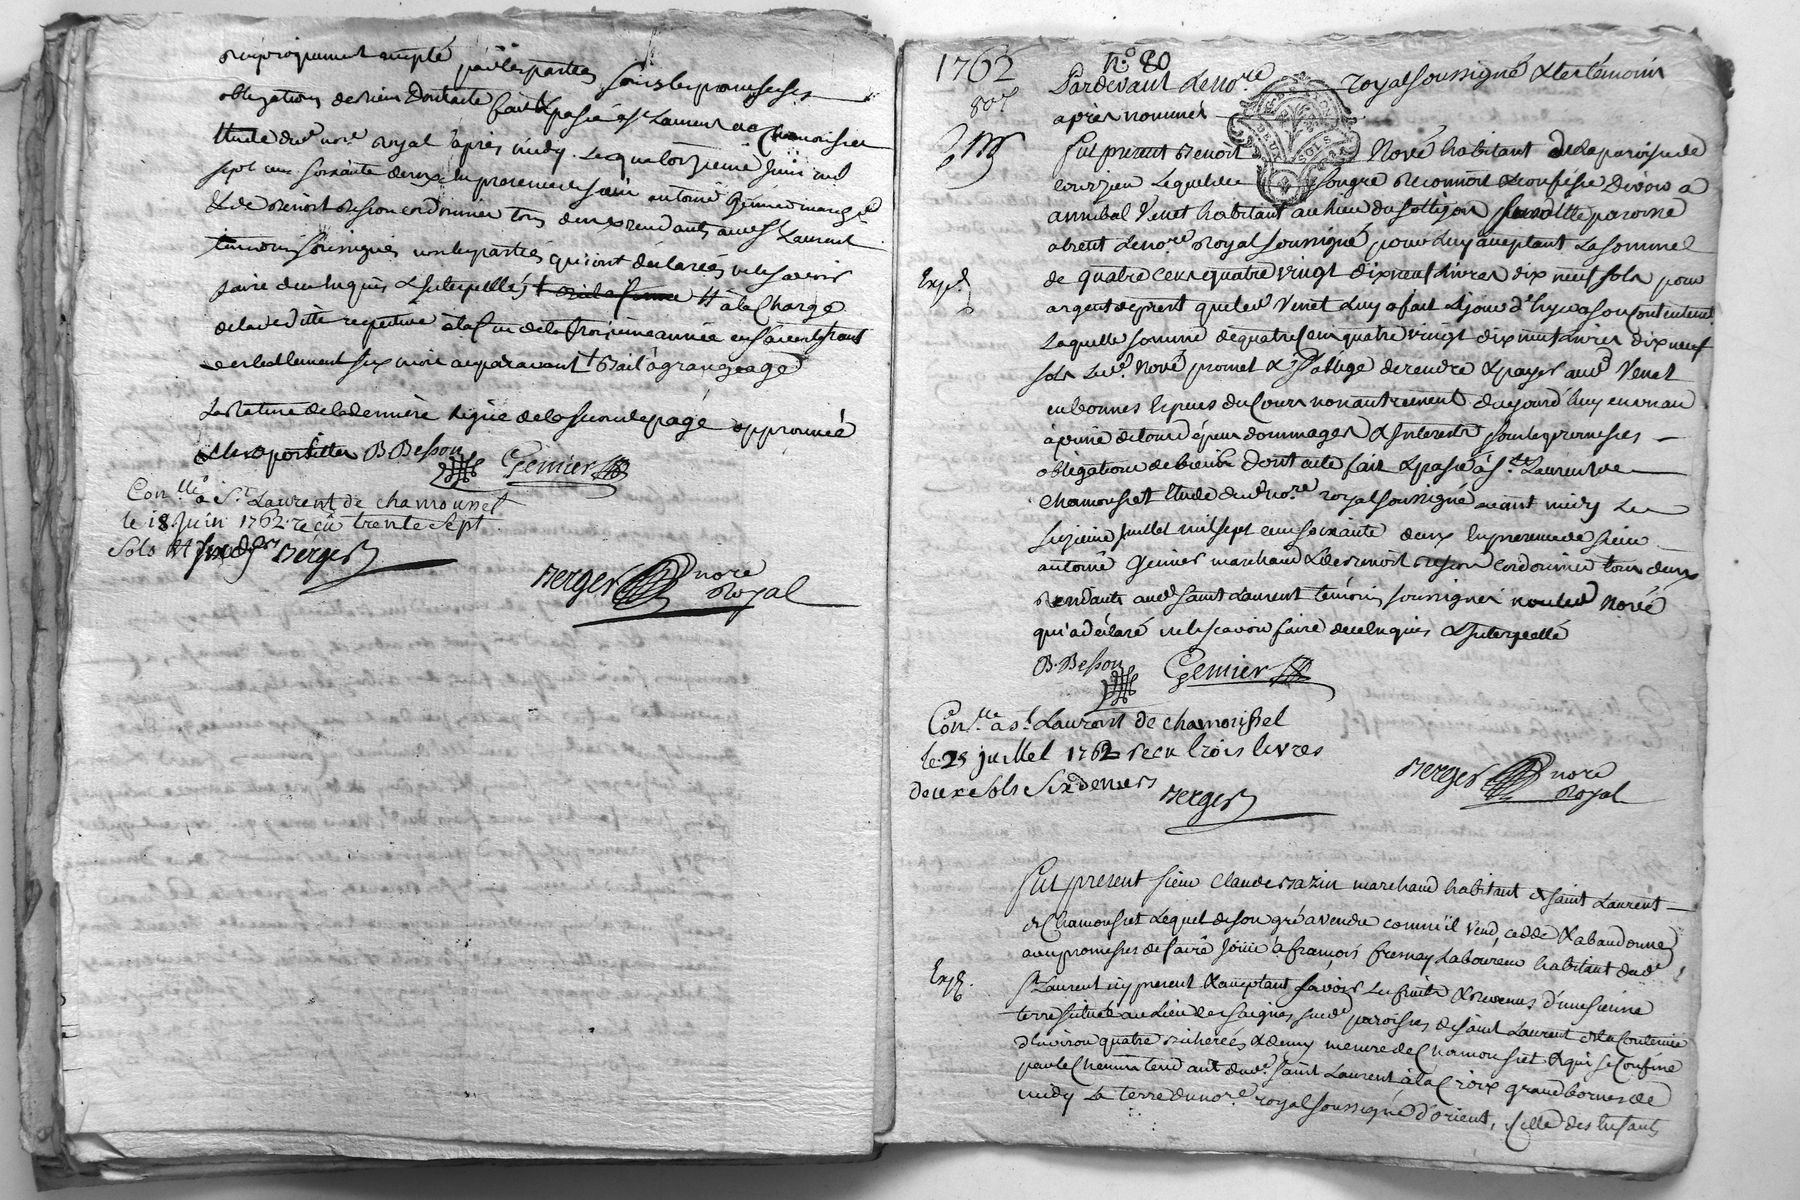 reciproquement accepté par lesparties souslespromesses
obligations de biens Dont acte fait & passé à st Laurent de Chamousset
Etude dud. nore. royal après midy Le quatorzieme Juin mil
sept cent soixante deux En presence de sieur antoine Gemier march.
& de Benoit Besson cordonnier tous deux residants aud St Laurent
temoins soussignés non les parties qui ont déclarées ne le sçavoir
faire de ce Enquis & Interpellés à la Charge
dela deditte respective à la fin de la troisieme année en s'avertissant
verballement six mois auparavant † Bail à grangeage
La rature de la derniere ligne de la seconde page approuvée
B. Besson Gemier
Con.lle à St. Laurent de chamousset
le 18 Juin 1762. reçu trente sept
sols Berger
Berger nore
Royal
1762 no. 80
Pardevant Le nore. royal soussigné & les témoins
80r
après nommés
fut present Benoit Nové habitant de la paroisse de
Lequel de son gré reconnoit & confesse devoir a
annibal Venet habitant au lieu du paroisse
absent Le nore. royal soussigné pour Luy acceptant La somme
de quatre cens quatre vingt dix neuf Livres dix neuf sols pour
Exp.
argent de pret que led Venet Luy a fait Ce jourd'huy a son contentement
Laquelle somme de quatre cens quatre vingt dix neuf Livres dix neuf
sols Led. Nové promet & s'oblige de rendre & payer aud Venet
en bonnes Especes du Cours non autrement d'aujourd'huy en un an
à peine de tous dépens dommages & Interests sous les promesses
obligations de biens Dont acte fait & passé à St. Laurent de
Chamousset Etude dud no.re royal soussigné avant midy Le
juillet mil sept cens soixante deux En presence de sieur
antoine Gemier marchand & de Benoit Besson Cordonnier tous deux
Residants aud saint Laurent témoins soussignés non led Nové
qui a déclaré ne le scavoir faire de ce Enquis & Interpellé
B. Besson Gemier
Con.lle à St. Laurent de chamousset
le 25 juillet 1762 recu trois livres
deux sols six deniers Berger
Berger nore
Royal
fut present sieur Claude Bazin marchand habitant à saint Laurent
de Chamousset Lequel de son gré a vendu comme il vend, cede & abandonne
avec promesses de faire Jouir à françois fresnay Laboureur habitant dud
Exp.
St Laurent icy present & acceptant sçavoir Les fruits & revenus d'une sienne
terre située au Lieu des saignes sud. paroisse de saint Laurent de la Contenue
d'environ quatre bicherées & demy mesure de Chamousset & qui se Confine
par le Chemin tendant dud. saint Laurent à la Croix grand bornes de
midy La terre du nore. royal soussigné d'orient, Celle des Enfants